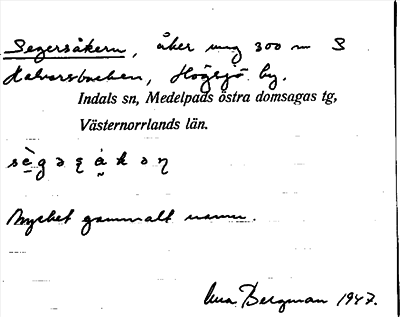 Segersåkern, åker ung 300 m S
Halvarsbacken, Högsjö by.
Indals sn, Medelpads östra domsagas tg,
Västernorrlands län.
Mycket gammalt namn.
Bergman 1947.